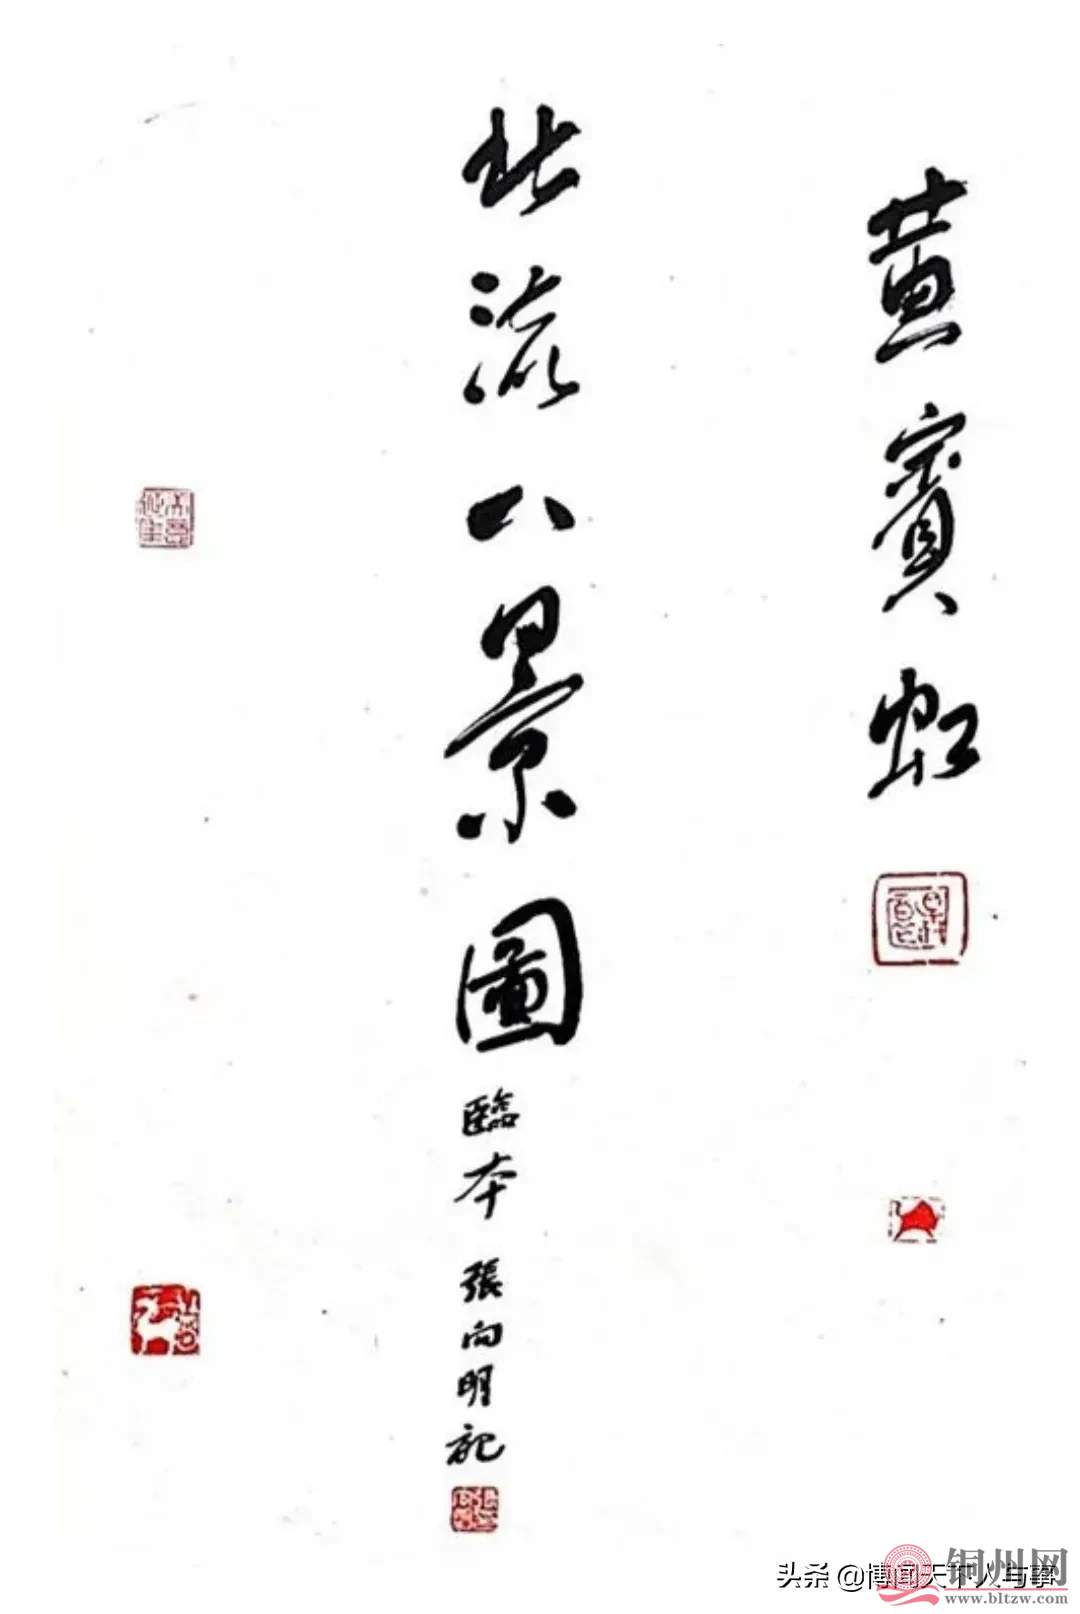 黄賓虹
北流八景圖
臨本 張向明記
头条 @博闻天下人与事
铜州网
www.bltzw.com